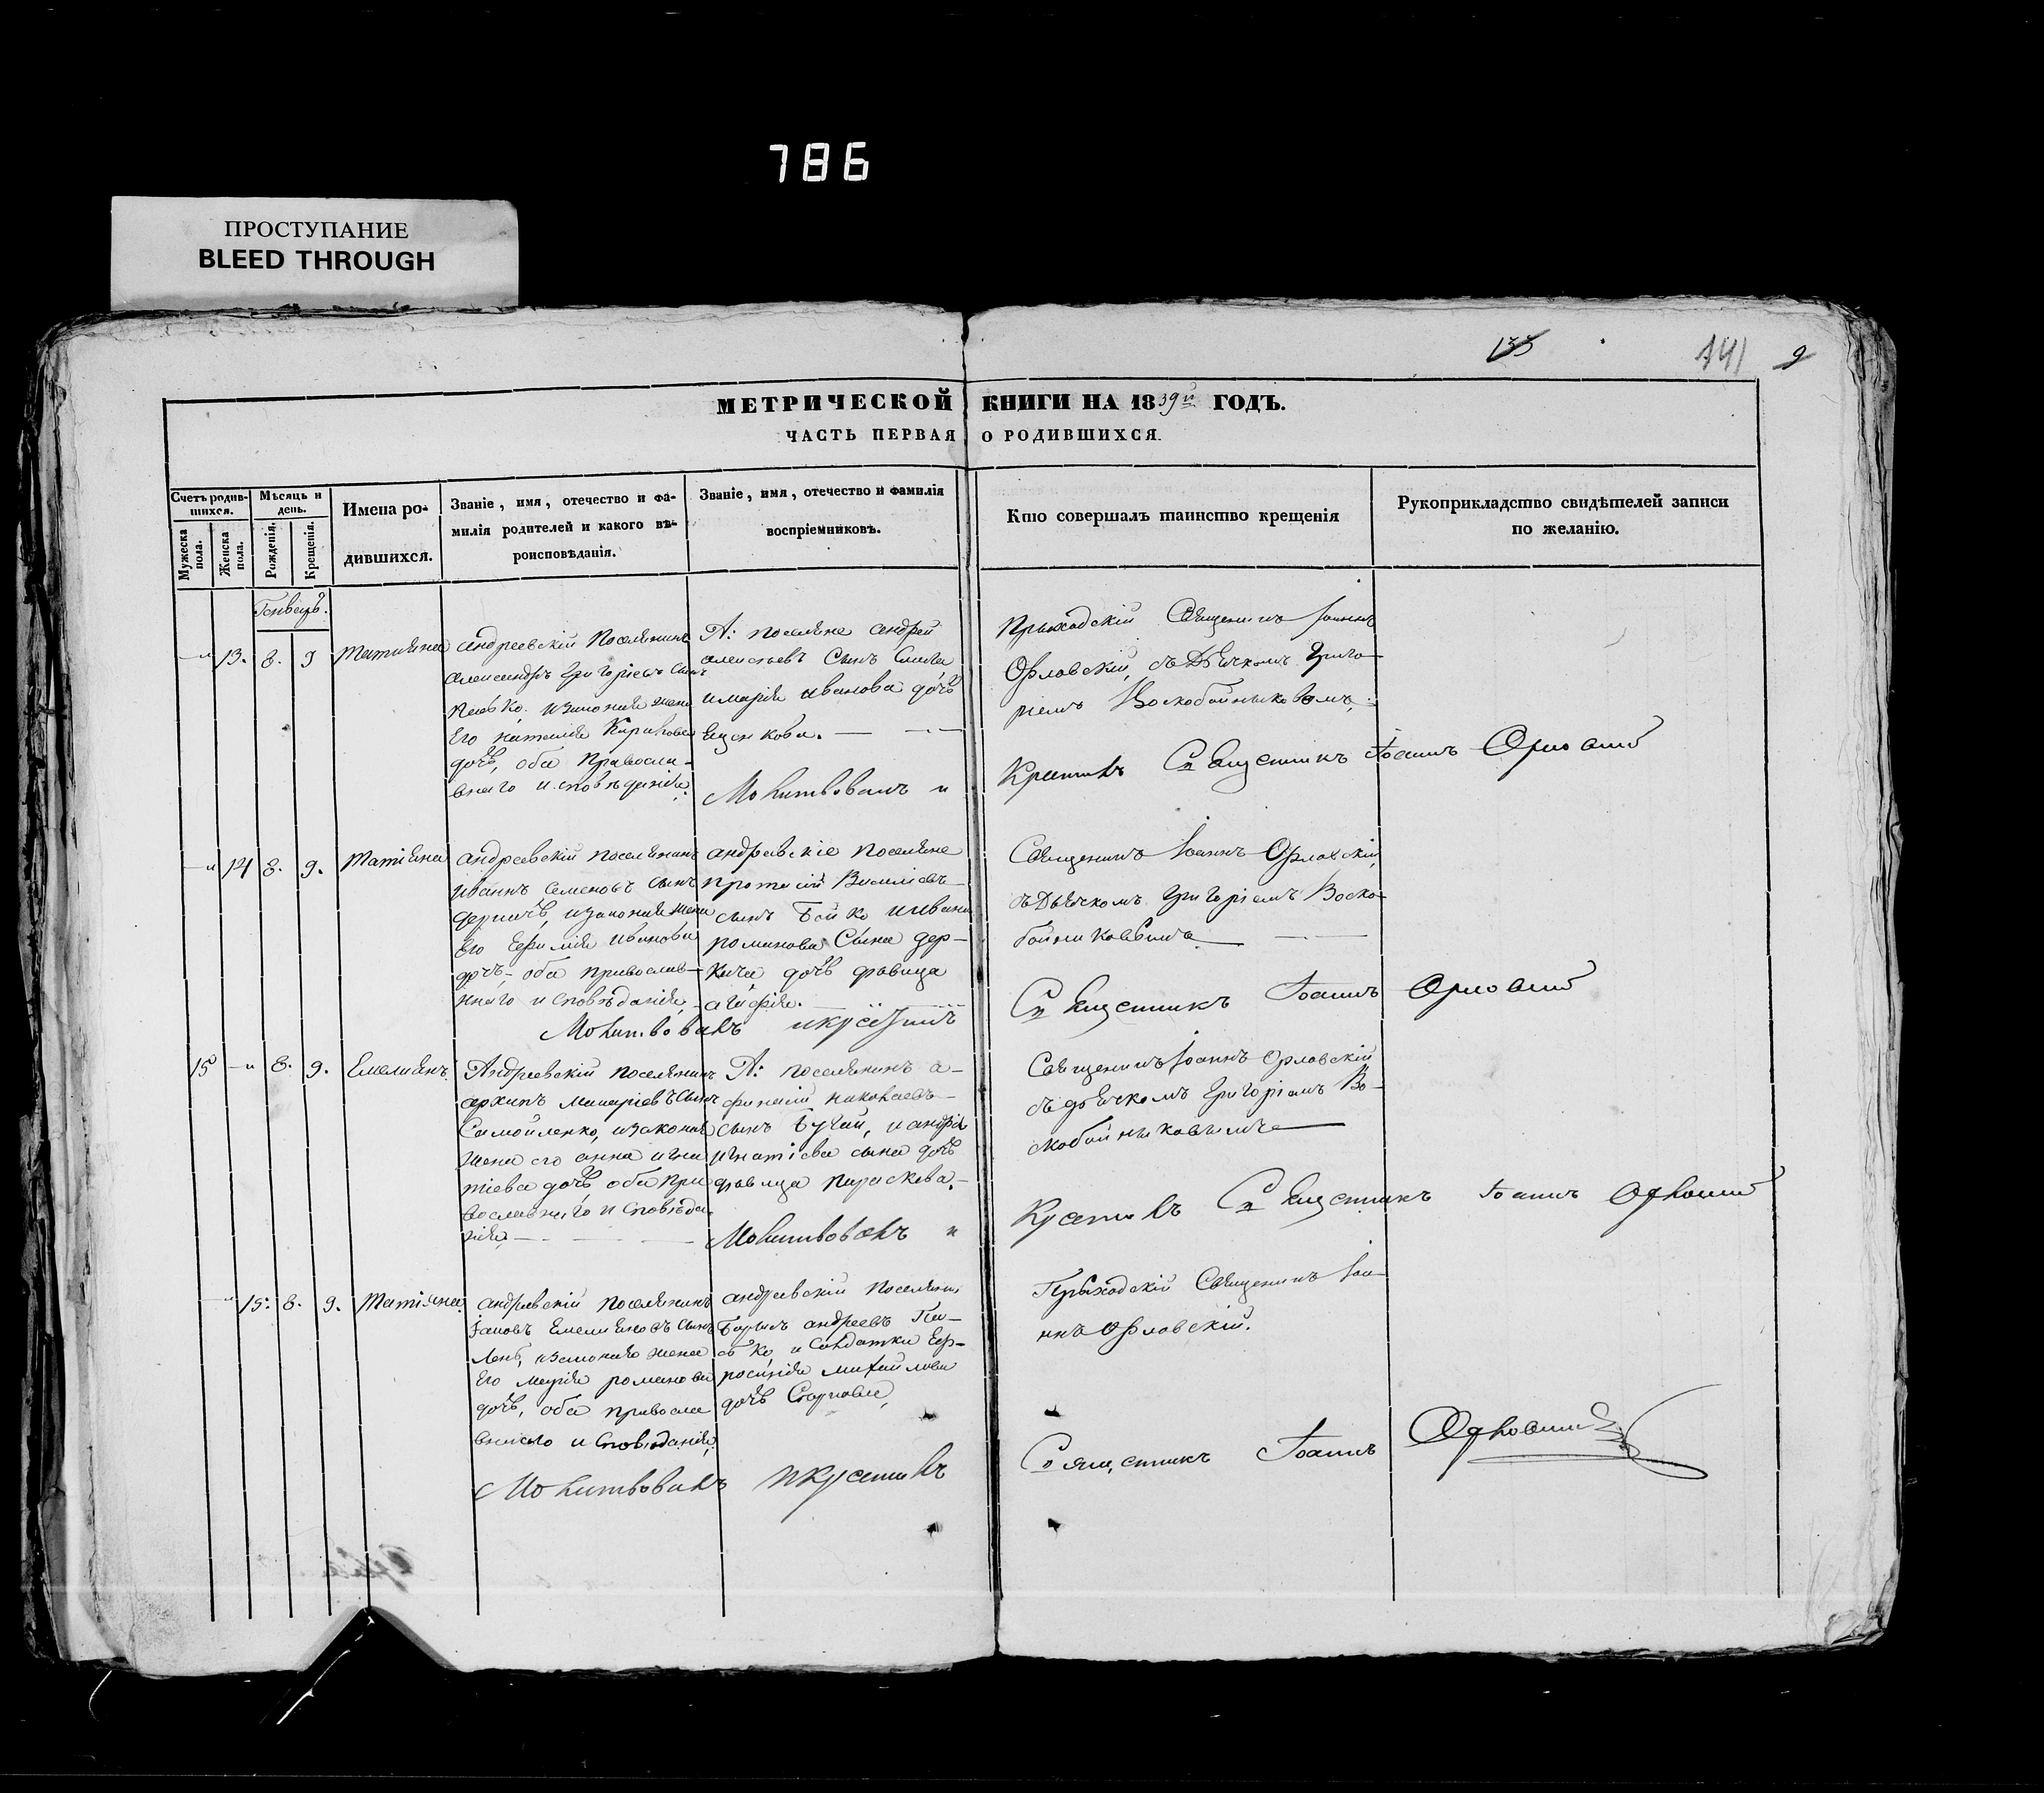 786
ПРОСТУПАНИЕ
BLEED THROUGH
135
141
9
МЕТРИЧЕСКОЙ КНИГИ НА 1839й ГОДЪ.
ЧАСТЬ ПЕРВАЯ О РОДИВШИХСЯ.
Счетъ родив-
шихся.
Мужеска
пола.
Женска
пола.
Мѣсяцъ и
день.
Рожденія.
Крещенія.
Имена ро-
дившихся.
Званіе, имя, отечество и фа-
милія родителей и какого вѣ-
роисповѣданія.
Званіе, имя, отечество и фамилія
воспріемниковъ.
Кто совершалъ таинство крещенія
Рукоприкладство свидѣтелей записи
по желанію.
Генварь.
13. 8. 9
андреевскій поселянинъ
александръ григоріевъ сынъ
законная жена
его наталія
дочь, оба Правосла-
внаго исповѣданія.
А: поселяне андрей
сынъ
имарія иванова дочь
Молитвовалъ и
Приходскій Священикъ Іоаннъ
Орловскій, съ Дьячкомъ Григо-
ріемъ Воскобойниковымъ.
Крестилъ Священникъ Іоаннъ Орловскій
14 8. 9. Татіяна
андреевскій поселянинъ
иванъ семеновъ сынъ
изаконная жена
его Ефимія иванова
дочь, оба православ-
наго исповѣданія
андреевскіе поселяне
протасій Василіевъ
сынъ Бойко иивана
романова Сына дер-
кача дочь дѣвица
агафія.
Молитвовалъ икрестилъ
Священикъ Іоаннъ Орловскій
съ Дьячкомъ Григоріемъ Воско-
бойниковымъ
Священникъ Іоаннъ Орловскій
15 8. 9. Емелианъ
Андреевскій поселянинъ
архипъ макаріевъ сынъ
Самойленко, изаконная
жена его анна игна
тіева дочь, оба пра
вославнаго исповѣда
нія
А: поселянинъ а-
фанасій николаевъ
сынъ Бугай, и андрея
игнатіева сына дочь
дѣвица параскева.
Молитвовалъ и
Священикъ Іоаннъ Орловскій
съ дьячкомъ Григоріемъ Во-
скобойниковымъ
Крестилъ Священникъ Іоаннъ Орловскій
15. 8. 9. Татіяна
андреевскій поселянинъ
Іаковъ Емелияновъ сынъ
законная жена
его марія романова
дочь, оба правосла
внаго исповѣданія
андреевскій поселянин
андреевъ
и Солдатка Еф-
росинія михайлова
дочь
Молитвовалъ икрестилъ
Приходскій Священикъ Іоа-
ннъ Орловскій.
Священникъ Іоаннъ Орловскій